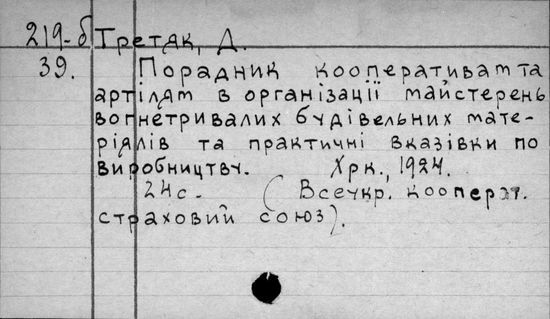 219-б Третяк, Д.
39. Порадник кооперативам та
артілям в організації майстерень
вогнетривалих будівельних мате-
ріялів та практичні вказівки по
виробництву. Хрк., 1924.
24с. (Всеукр. кооперат.
страховий союз).